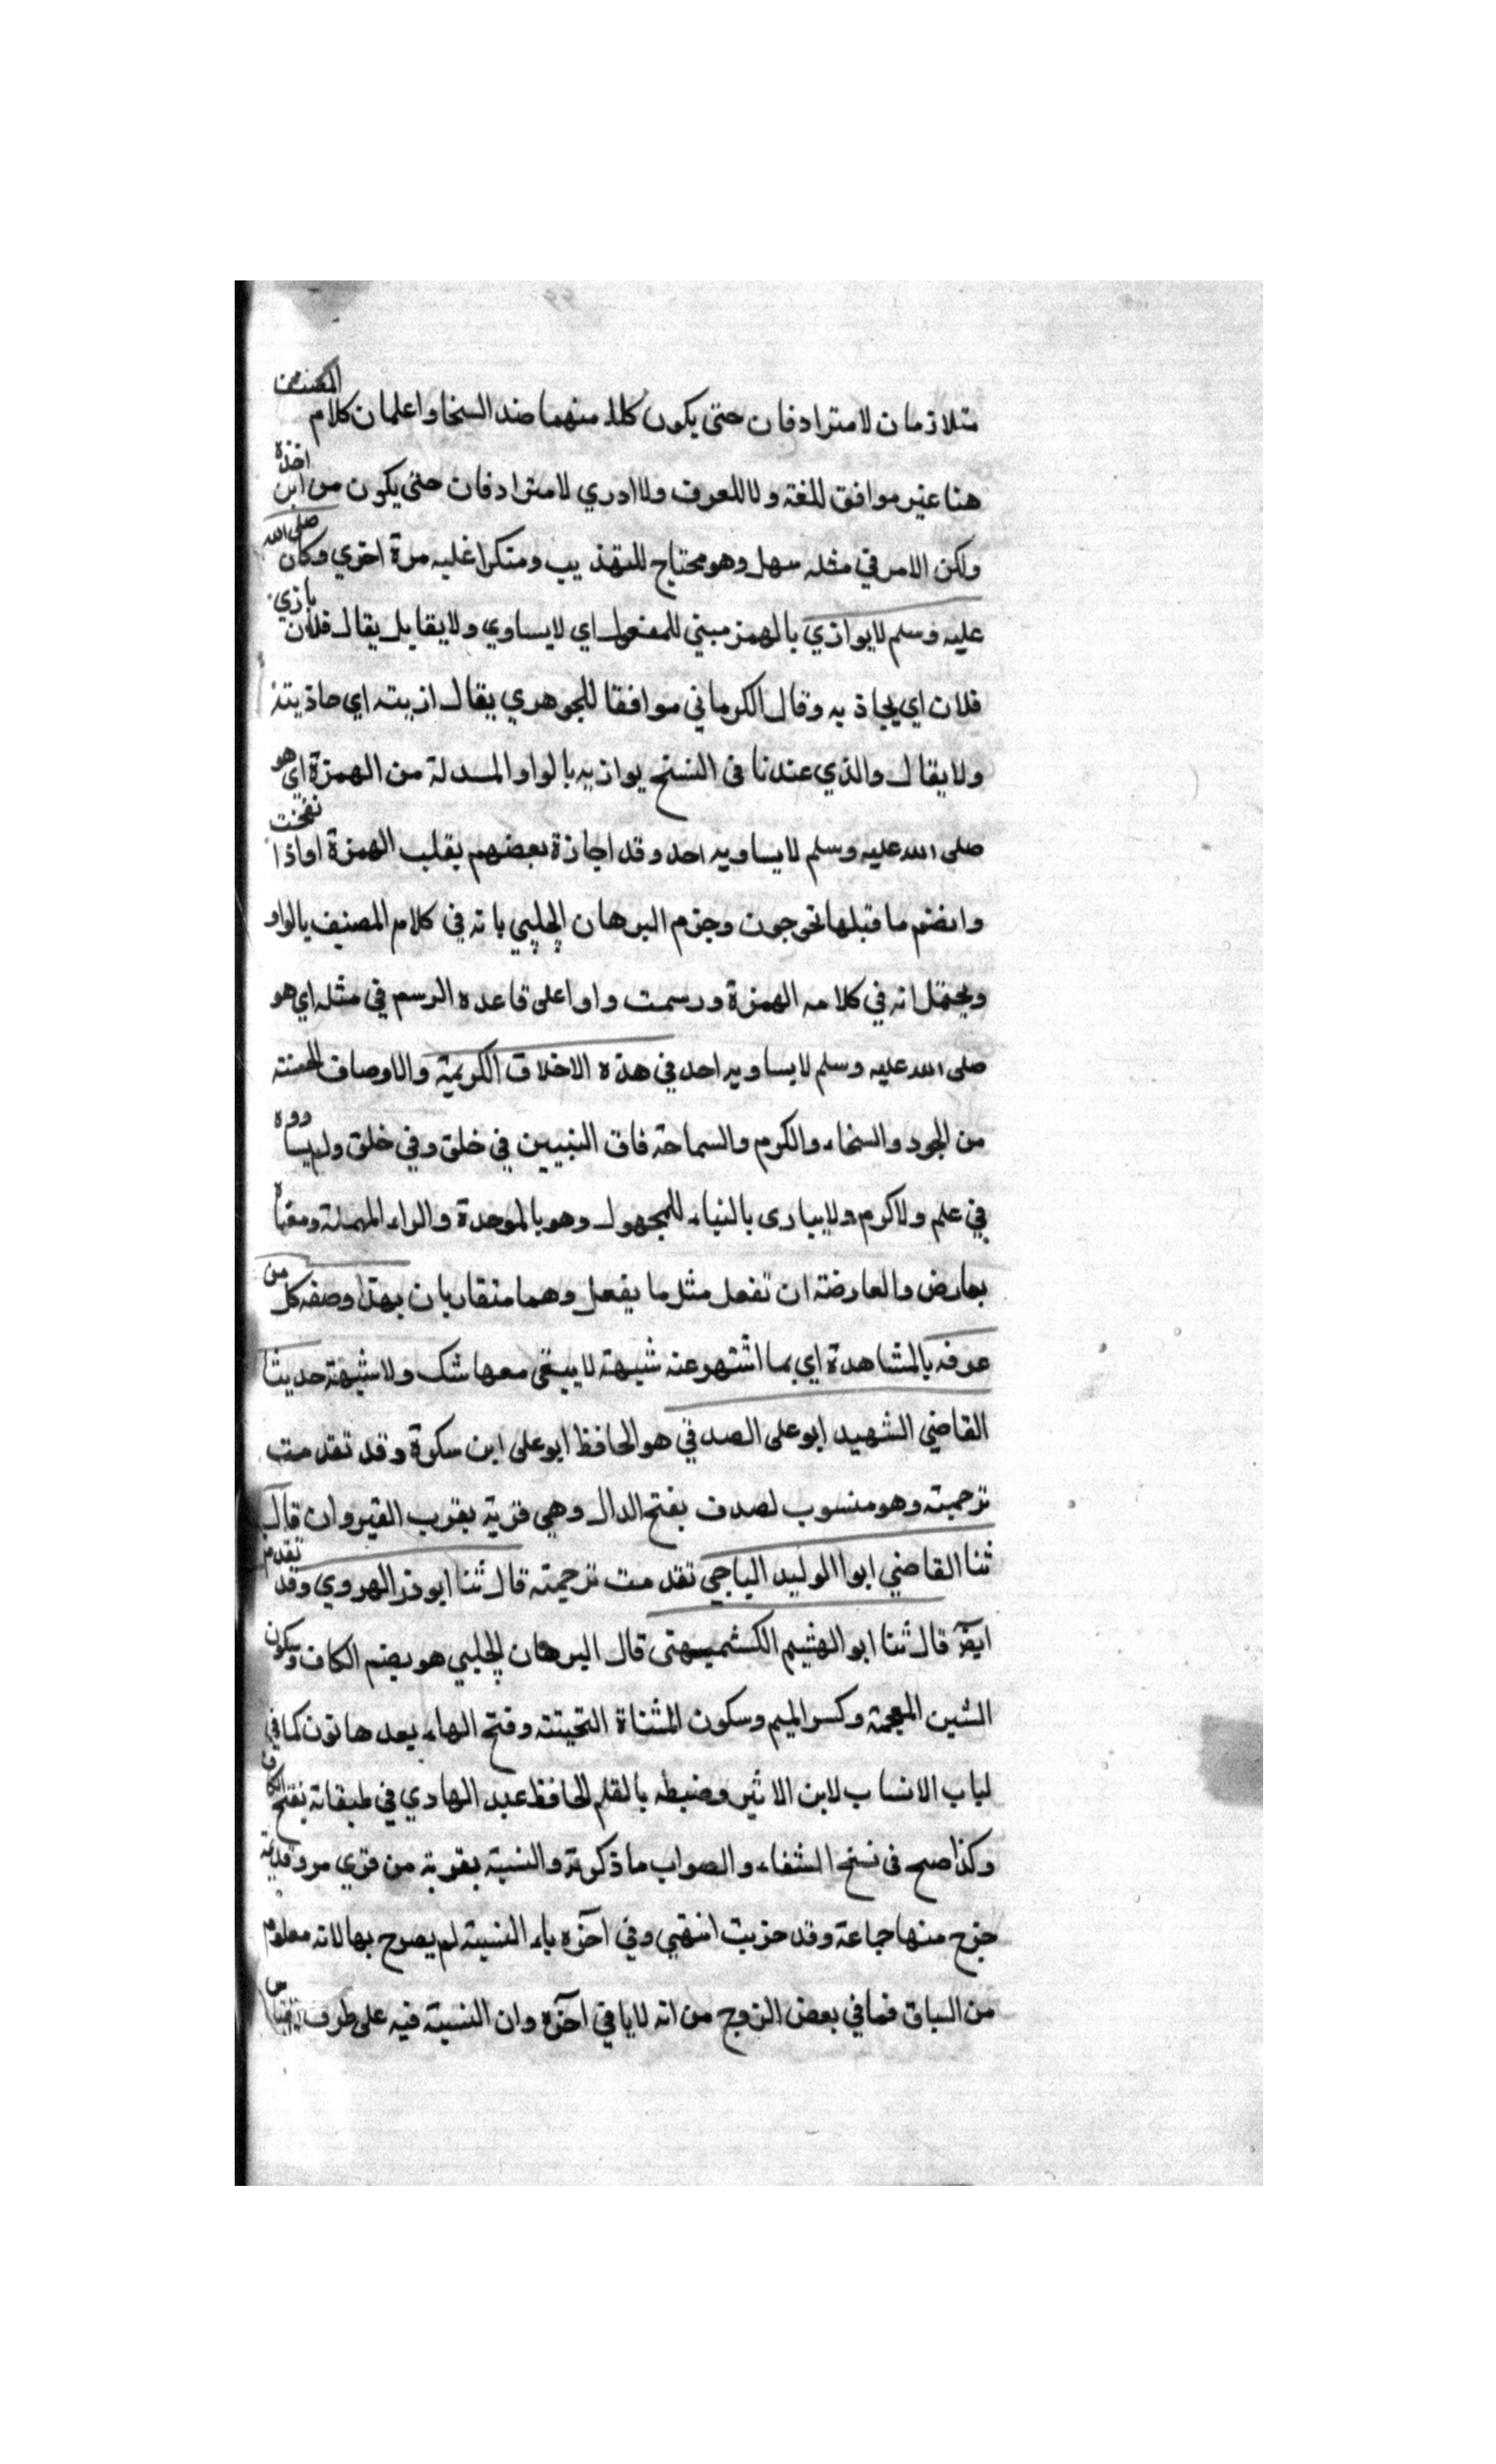 متلازمان لا مترادفان حتى يكون كلا منهما ضد السخا واعلم ان كلام المصنف
هنا غير موافق للغة ولا للعرف ولا ادري لا مترادفان حتى يكون من اين اخذه
ولكن الامر في مثله سهل وهو محتاج للتهذيب ومتكرا عليه مرة اخري وكان صلى الله
عليه وسلم لا يوازي بالهمز مبني للمفعول اي لا يساوي ولا يقابل يقال فلان بازي
فلان اي يحاذيه وقال الكرماني موافقا للجوهري يقال ازيته اي حاذيته
ولا يقال والذي عندنا في النسخ يوازيه بالواو المبدلة من الهمزة اي هو
صلى الله عليه وسلم لا يساويه احد وقد اجازة بعضهم بقلب الهمزة اواذا نفخت
وانضم ما قبلها نحو جون وجزم البرهان الحلبي بانه في كلام المصنف بالواو
ويحتمل انه في كلامه الهمزة ورسمت واوا على قاعده الرسم في مثله اي هو
صلى الله عليه وسلم لا يساويه احد في هذه الاخلاق الكريمة والاوصاف الحسنة
من الجود والسخاء والكرم والسماحة فاق النبيين في خلق وفي خلق ولم يساووه
في علم ولا كرم ولا يبارى بالبناء للمجهول وهو بالموحدة والراء المهملة ومعناه
يعارض والعارضة ان تفعل مثل ما يفعل وهما متقاربان بهذا وصفه كل من
عرفه بالمشاهدة اي بما اشتهر عنه شبهة لا يبقى معها شك ولا شبهة حديثا
القاضي الشهيد ابو على الصدفي هو الحافظ ابو على ابن سكرة وقد تقدمت
ترجمته وهو منسوب لصدف بفتح الدال وهي قرية بقرب القيروان قال
ثنا القاضي ابوا الوليد الباجي تقدمت ترجمته قال ثنا ابو ذر الهروي وقد تقدم
ايضا قال ثنا ابو الهثيم الكشميهني قال البرهان الحلبي هو بضم الكاف وسكون
الشين المعجمة وكسر الميم وسكون المثناة التحيتة وفتح الهاء بعدها نون كما في
لباب الانساب لابن الاثير وضبطه بالقلم الحافظ عبد الهادي في طبقاته بفتح الكاف
وكذا صح في نسخ الشفاء والصواب ما ذكرته والنسبة بقرية من قري مرو قديمة
خرج منها جماعة وقد خربت انتهي وفي آخره ياء النسبة لم يصرح بها لانه معلوم
من السياق فما في بعض الزوج من انه لا يا في آخره وان النسبة فيه على طرف